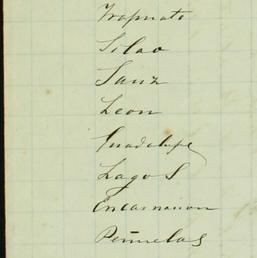 Irapuato
Silao
Sauz
Leon
Guadalupe
Lagos
Encarnacion
Peñuelas